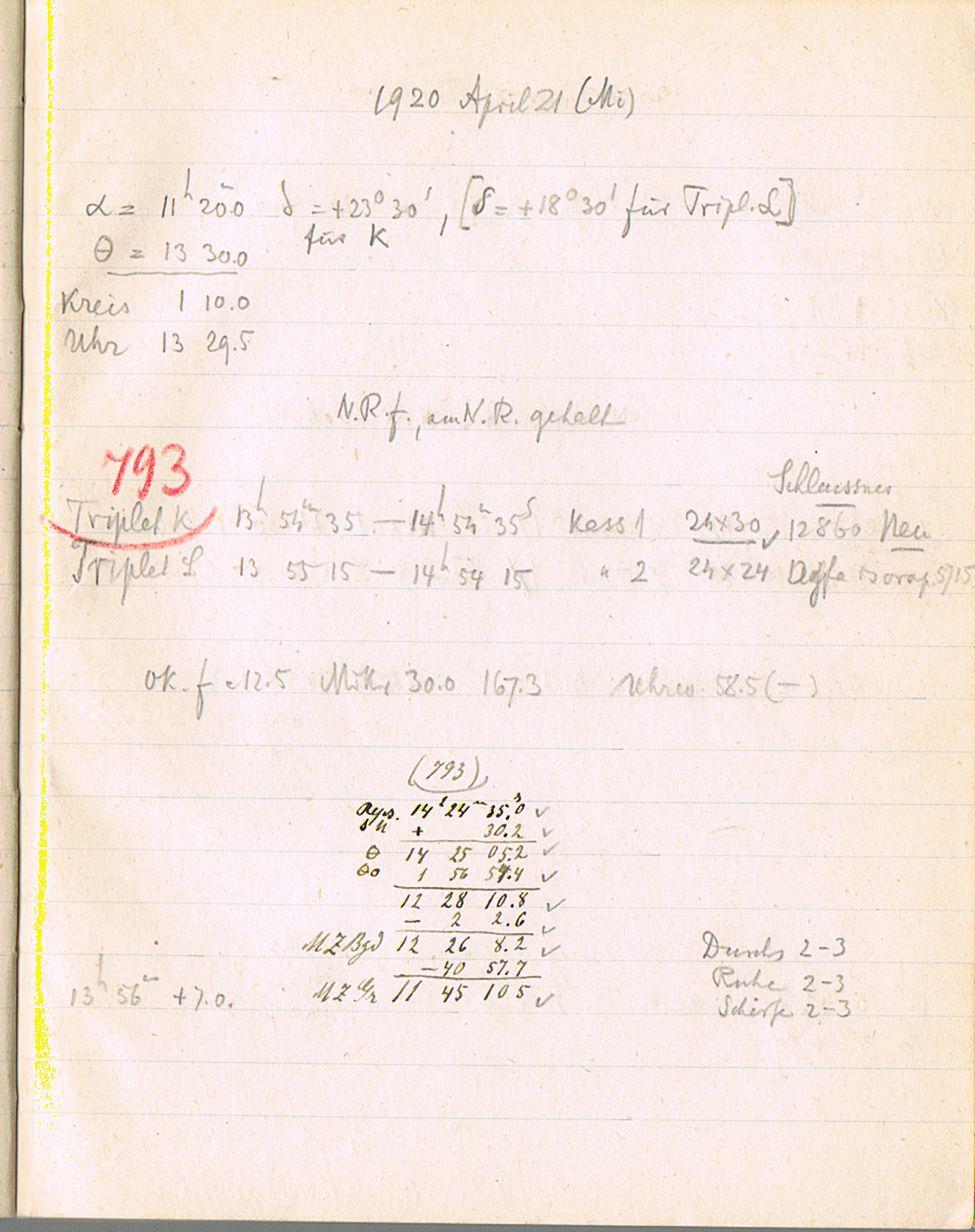 1920 April 21 (Mi)
α = 11h 20m.0 δ = +23° 30', [δ = +18° 30' für Tripl. L]
für K
θ = 13 30.0
Kreis 1 10.0
Uhr 13 29.5
N.R. f., am N.R. gehalt
793
Schleussner
Triplet K 13h 54m 35 — 14h 54m 35s Kass 1 24×30 12860 Neu
Triplet L 13 55 15 — 14h 54 15 " 2 24×24 Agfa 5/15
Ok. f = 12.5 Mikr. 30.0 167.3 Uhrw. 58.5 (–)
(793)
14h 24m 35s.0 ✓
+ 30.2 ✓
θ 14 25 05.2 ✓
θo 1 56 54.4 ✓
12 28 10.8 ✓
– 2 2.6 ✓
MZ Bgd 12 26 8.2 ✓
–40 57.7
MZ Gr 11 45 10 5 ✓
Durchs 2–3
Ruhe 2–3
Schärfe 2–3
13h 56m +7.0.